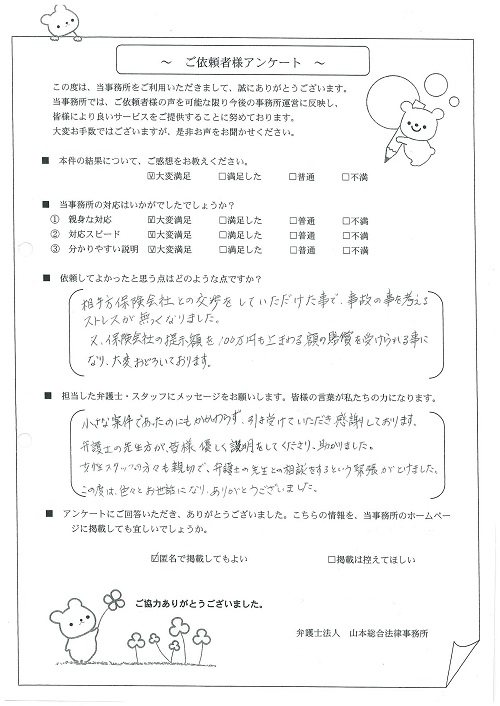 ～　ご依頼者様アンケート　～
この度は、当事務所をご利用いただきまして、誠にありがとうございます。
当事務所では、ご依頼者様の声を可能な限り今後の事務所運営に反映し、
皆様により良いサービスをご提供することに努めております。
大変お手数ではございますが、是非お声をお聞かせください。
■　本件の結果について、ご感想をお教えください。
☑大変満足　□満足した　□普通　□不満
■　当事務所の対応はいかがでしたでしょうか？
①　親身な対応　☑大変満足　□満足した　□普通　□不満
②　対応スピード　☑大変満足　□満足した　□普通　□不満
③　分かりやすい説明　☑大変満足　□満足した　□普通　□不満
■　依頼してよかったと思う点はどのような点ですか？
相手方保険会社との交渉をしていただけた事で、事故の事を考える
ストレスが無くなりました。
又、保険会社の提示額を100万円も上まわる額の賠償を受けられる事に
なり、大変おどろいております。
■　担当した弁護士・スタッフにメッセージをお願いします。皆様の言葉が私たちの力になります。
小さな案件であったのにもかかわらず、引き受けていただき感謝しております。
弁護士の先生方が、皆様優しく説明をしてくださり、助かりました。
女性スタッフの方々も親切で、弁護士の先生との相談をするという緊張がとけました。
この度は、色々とお世話になり、ありがとうございました。
■　アンケートにご回答いただき、ありがとうございました。こちらの情報を、当事務所のホームペー
ジに掲載しても宜しいでしょうか。
☑匿名で掲載してもよい　□掲載は控えてほしい
ご協力ありがとうございました。
弁護士法人　山本総合法律事務所